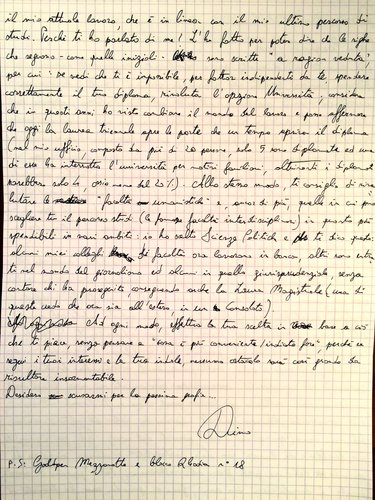 il mio attuale lavoro, che è in linea con il mio ultimo percorso di
studi. Perché ti ho parlato di me? L'ho fatto per poter dire che le righe
che seguono - come quelle iniziali - sono scritte "a ragion veduta",
per cui: se vedi che ti è impossibile, per fattori indipendenti da te spendere
correttamente il tuo diploma, rivaluta l'opzione Università, considera
che in questi anni ho visto cambiare il mondo del lavoro e posso affermare
che oggi la laurea triennale apre le porte che un tempo apriva il diploma
(nel mio ufficio, composto da più di 20 persone, solo 5 sono diplomate ed una
di esse ha interrotto l'università per motivi familiari, altrimenti i diplomati
sarebbero solo 4, ossia meno del 20%). Allo stesso modo, ti consiglio di
lutare le facoltà umanistiche e, ancor di più, quelle in cui puoi
scegliere tu il percorso studi (le facoltà interdisciplinari) in quanto più
spendibili in vari ambiti: io ho scelto Scienze Politiche e ti dico questo:
alcuni miei colleghi di facoltà ora lavorano in banca, altri sono entra
ti nel mondo del giornalismo ed alcuni in quello giurisprudenziale, senza
contare chi ha proseguito conseguendo anche la Laurea Magistrale (una di
queste vedo che ora sia all'estero, in un Consolato).
Ad ogni modo, effettua la tua scelta in base a ciò
che ti piace, senza pensare a "cosa è più conveniente/indicato fare", perché se
segui i tuoi interessi e la tua indole, nessuno ostacolo sarà così grande da
risultare insormontabile.
Desidero scusarmi per la pessima grafia...
Dino
P.S: Mezzanotte e n° 18